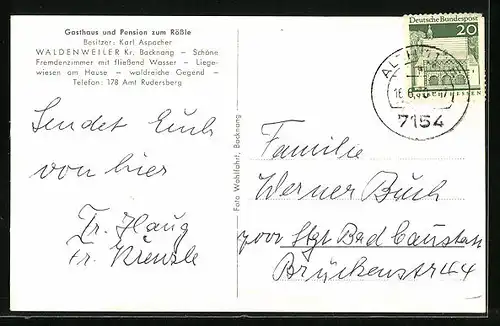 Gasthaus und Pension zum Rößle
Besitzer: Karl Aspacher
WALDENWEILER Kr. Backnang – Schöne
Fremdenzimmer mit fließend Wasser – Liege-
wiesen am Hause – waldreiche Gegend –
Telefon: 178 Amt Rudersberg
Sendet Euch
von hier
Fr. Haug
Fr. Krenzle
Foto Wohlfahrt, Backnang
Deutsche Bundespost
20
16.6.
7154
Familie
Werner Buch
7000 Stgt Bad Canstatt
Brückenstr 44